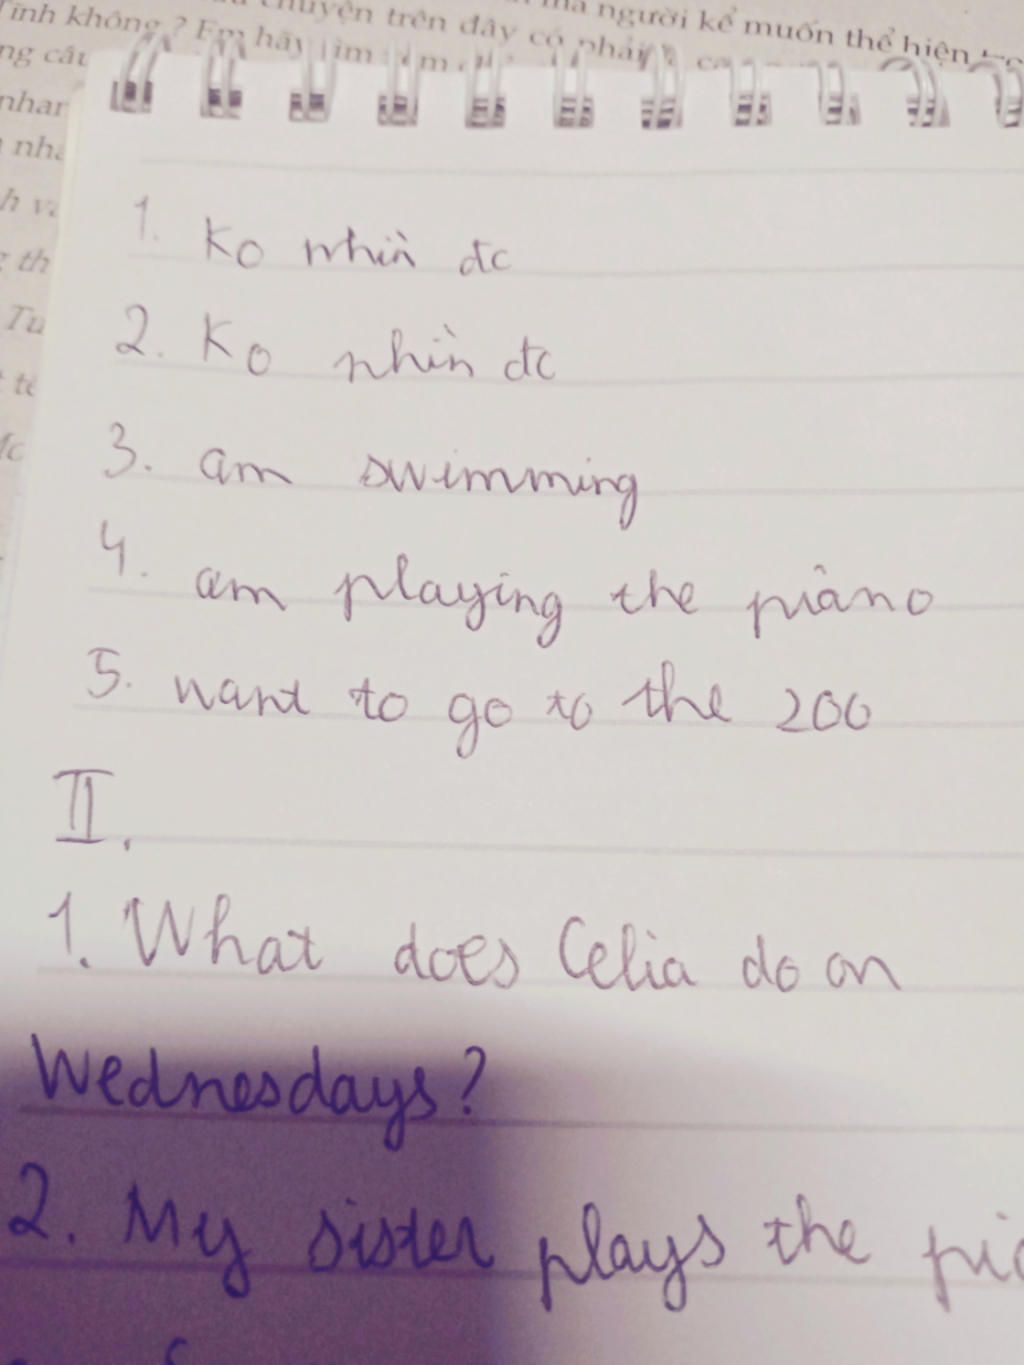 Tĩnh không ? Em hãy tìm
chuyện trên đây có phải
mà người kể muốn thể hiện
ng câu
nhan
nha
h và
g th
Tu
t tê
1. Ko nhìn đc
2. Ko nhìn đc
3. am swimming
4. am playing the piano
5. want to go to the zoo
II.
1. What does Celia do on
Wednesdays?
2. My sister plays the pia